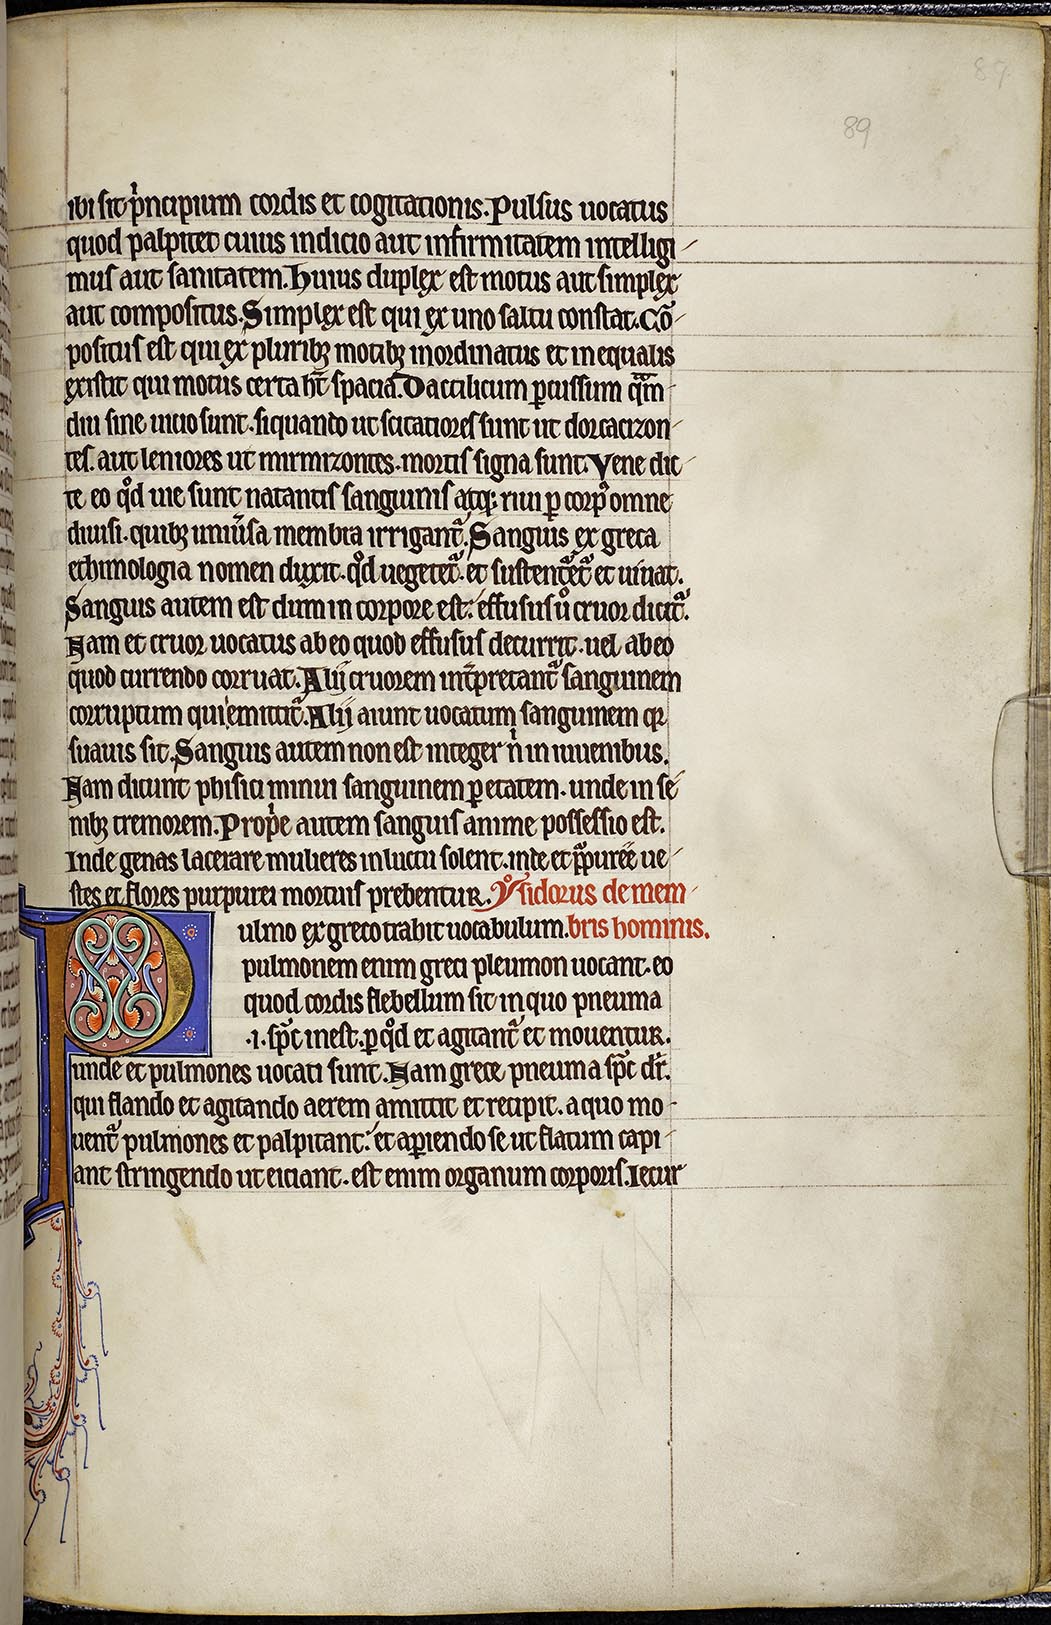 87
89
ibi sit pͥncipium cordis et cogitationis. Pulsus uocatus
quod palpitet cuius indicio aut infirmitatem intelligi
mus aut sanitatem. Huius duplex est motus aut simplex
aut compositus. Simplex est qui ex uno saltu constat. Cō
positus est qui ex pluribꝫ motibꝫ inordinatus et inequalis
existit qui motus certa hn̄t spacia. Dactilicum ꝑcussum qᷓm
diu sine uicio sunt. siquando ut scitatiores sunt ut dorcacizon
tes. aut leniores ut mirmizontes. mortis signa sunt. Vene dic
te eo qͦd uie sunt natantis sanguinis atqꝫ riui ꝑ corpꝰ omne
diuisi. quibꝫ uniũsa membra irrigantᷓ. Sanguis ex greca
ethimologia nomen duxit. qͦd uegetetᷓ. et sustentetᷓ et uiuat.
Sanguis autem est dum in corpore est. effusus uͦ cruor dicitᷓ.
Nam et cruor uocatus ab eo quod effusus decurrit. uel ab eo
quod currendo corruat. Alij cruorem int̄pretantᷓ sanguinem
corruptum qui emittitᷓ. Alij aiunt uocatum sanguinem qꝛ
suauis sit. Sanguis autem non est integer nͥ in iuuenibus.
Nam dicunt phisici minui sanguinem ꝑ etatem. unde in se
nibꝫ tremorem. Propͥe autem sanguis anime possessio est.
Inde genas lacerare mulieres in luctu solent. inde et pᷓpuree ue
stes et flores purpurei mortuis prebentur. Ysidorus de mem
ulmo ex greco trahit uocabulum. bris hominis.
pulmonem enim greci pleumon uocant. eo
quod cordis flebellum sit in quo pneuma
.i. sp̄c inest. ꝑ qͦd et agitantᷓ et mouentur.
unde et pulmones uocati sunt. Nam grece pneuma sp̄c dr̄.
qui flando et agitando aerem amittit et recipit. a quo mo
uentᷓ pulmones et palpitant. et apiendo se ut flatum capi
ant stringendo ut eiciant. est enim organum corporis. Iecur